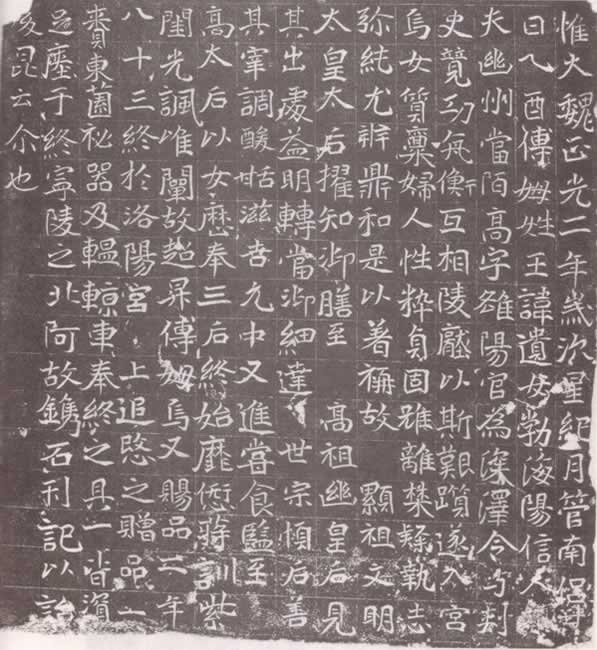 惟大魏正光二年歲次星紀月管南呂
日乙酉傅姆姓王諱遺女勃海陽信人
夫幽州當陌高字雒陽官為深澤令与刺
史競功亢衡互相陵壓以斯艱躓遂入宮
焉女質稟婦人性粹貞固雖離禁隸執志
弥純尤辨鼎和是以著稱故 顯祖文明
太皇太后擢知御膳至 高祖幽皇后見
其出處益明轉當御細達 世宗順后善
其宰調酸甜滋味允中又進嘗食監至
高太后以女歷奉三后終始靡愆蔣訓紫
闈光諷唯闡故超昇傅姆焉又賜品二年
八十三終於洛陽宮 上追愍之贈品一
賚東園祕器及轀輬車奉終之具一皆資
塟于終寧陵之北阿故鐫石刊記以詒
昆云尒也